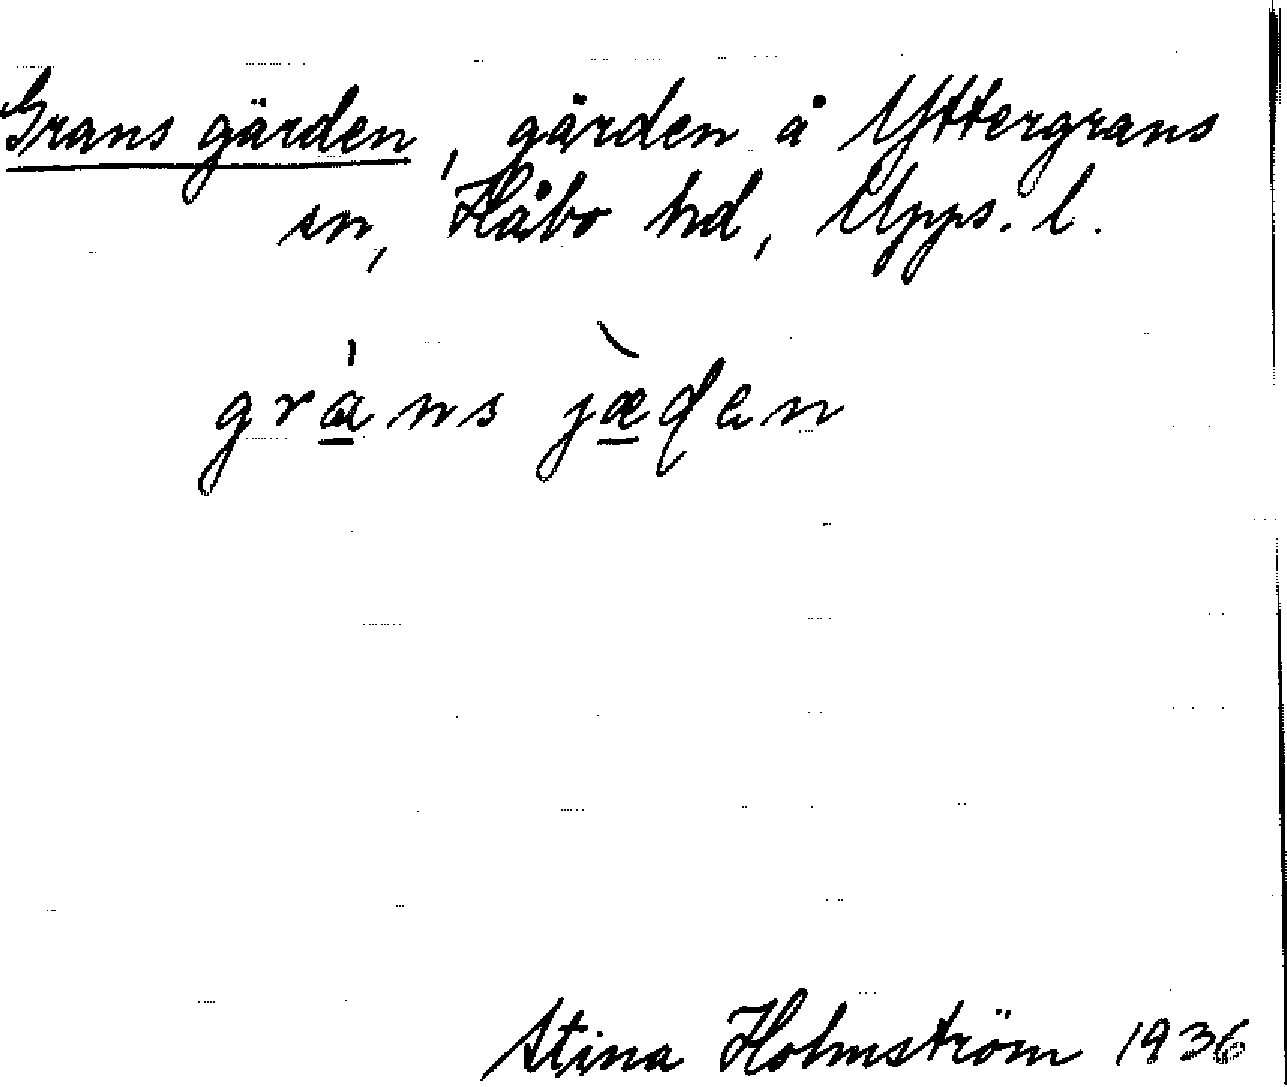 Grans gärden, gärden å Yttergrans
sn, Håbo hd, Upps. l.
gràns jæ̀ḍen
Stina Holmström 1936